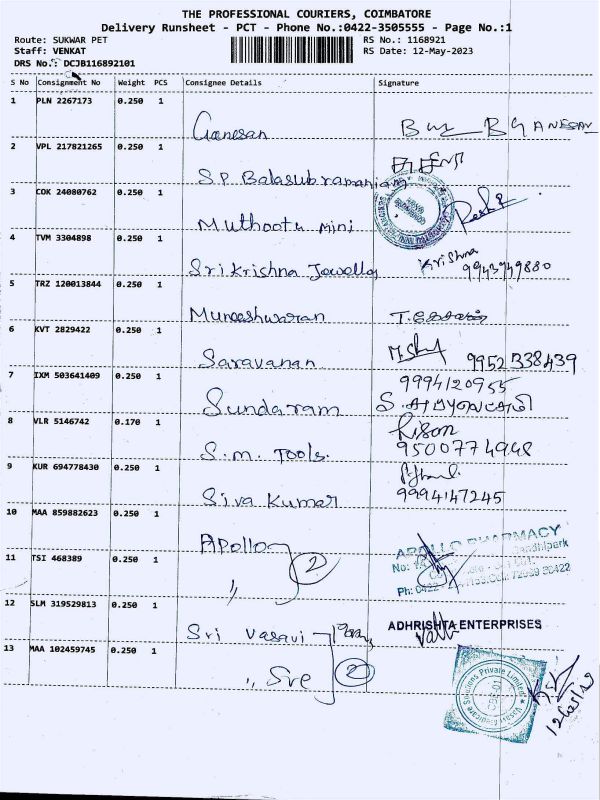 THE PROFESSIONAL COURIERS, COIMBATORE
Delivery Runsheet - PCT - Phone No.:0422-3505555 - Page No.:1
Route: SUKWAR PET
RS No.: 1168921
Staff: VENKAT
RS Date: 12-May-2023
DRS No.: DCJB116892101
S No Consignment No Weight PCS Consignee Details Signature
1 PLN 2267173 0.250 1 Ganesan B GANESAN
2 VPL 217821265 0.250 1 S.P. Balasubramaniam
3 COK 24080762 0.250 1 Muthootu mini
4 TVM 3304898 0.250 1 Sri Krishna Jewellery Krishna
9943949880
5 TRZ 120013844 0.250 1 Muneeshwaran
6 KVT 2829422 0.250 1 Saravanan 9952338439
7 IXM 503641409 0.250 1 Sundaram 9994120955
8 VLR 5146742 0.170 1 S.M. Tools. Rison
9500774948
9 KUR 694778430 0.250 1 Siva Kumar
9994147245
10 MAA 859882623 0.250 1 Apollo APOLLO PHARMACY
11 TSI 468389 0.250 1 " 2
12 SLM 319529813 0.250 1 Sri Vasavi ADHRISHTA ENTERPRISES
13 MAA 102459745 0.250 1 " Sre 2